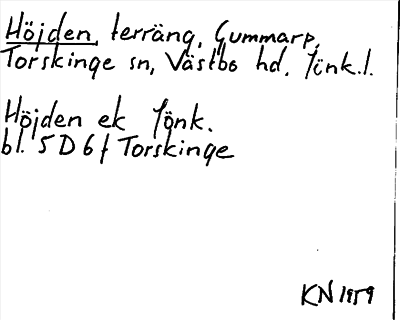 Höjden, terräng, Gummarp,
Torskinge sn, Västbo hd, Jönk.l.
Höjden ek Jönk.
bl. 5 D 6 f Torskinge
KN 1959